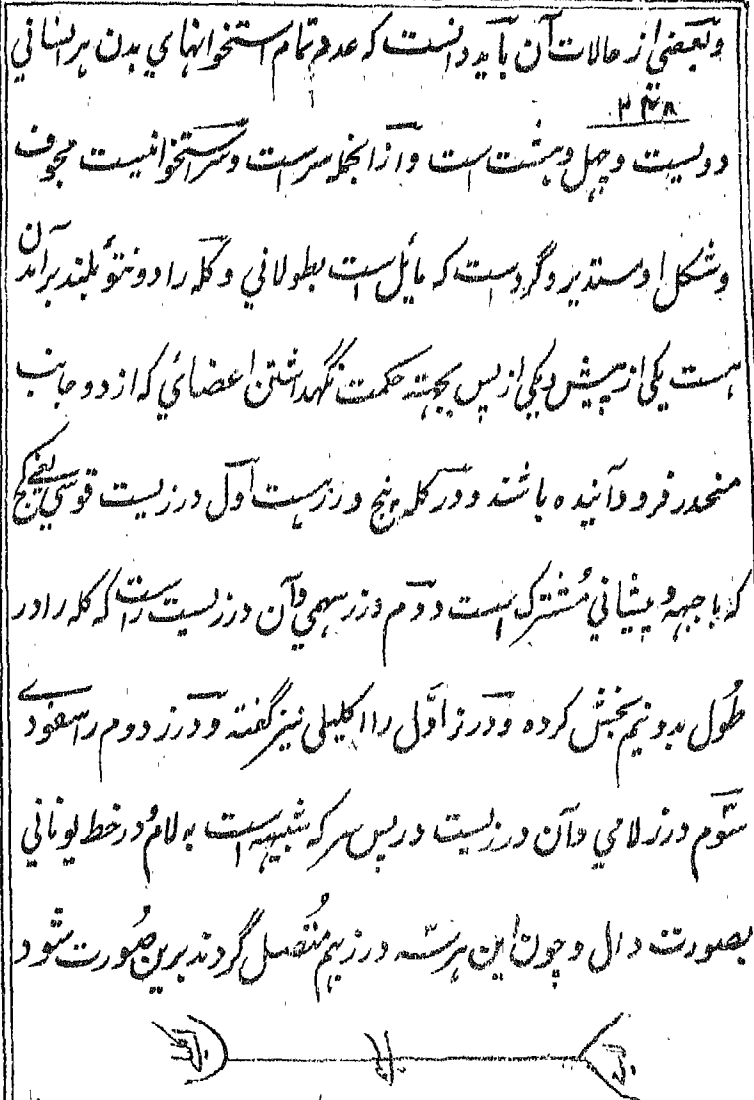 و بعضی از حالات آن باید دانست که عدد تمام استخوانهای بدن هر انسانی
۲۴۸
دویست و چهل و هشت است و از انجمله سر است و سر استخوانیست مجوف
و شکل او مستدیر و گرد است که مائل است بطولانی و کله را دو نتوء بلند برآمدن
هست یکی از پیش و یکی از پس بجهته حکمت نگهداشتن اعضائی که از دو جانب
منحدر فرود آئنده باشند و در کله پنج درز هست اول درزیست قوسی یعنے کج
که با جبهه و پیشانی مُشترک است دوم درز سهمی و آن درزیست راست که کله را در
طُول بدو نیم بخش کرده و درز اوّل را اکلیلی نیز گفته و درز دوم را سفودے
سوّم درز لامی و آن درزیست در پس سر که شبیه است به لام در خط یونانی
بصورت دال و چون این هر سه درز بهم مُتصل گردند برین صُورت شود